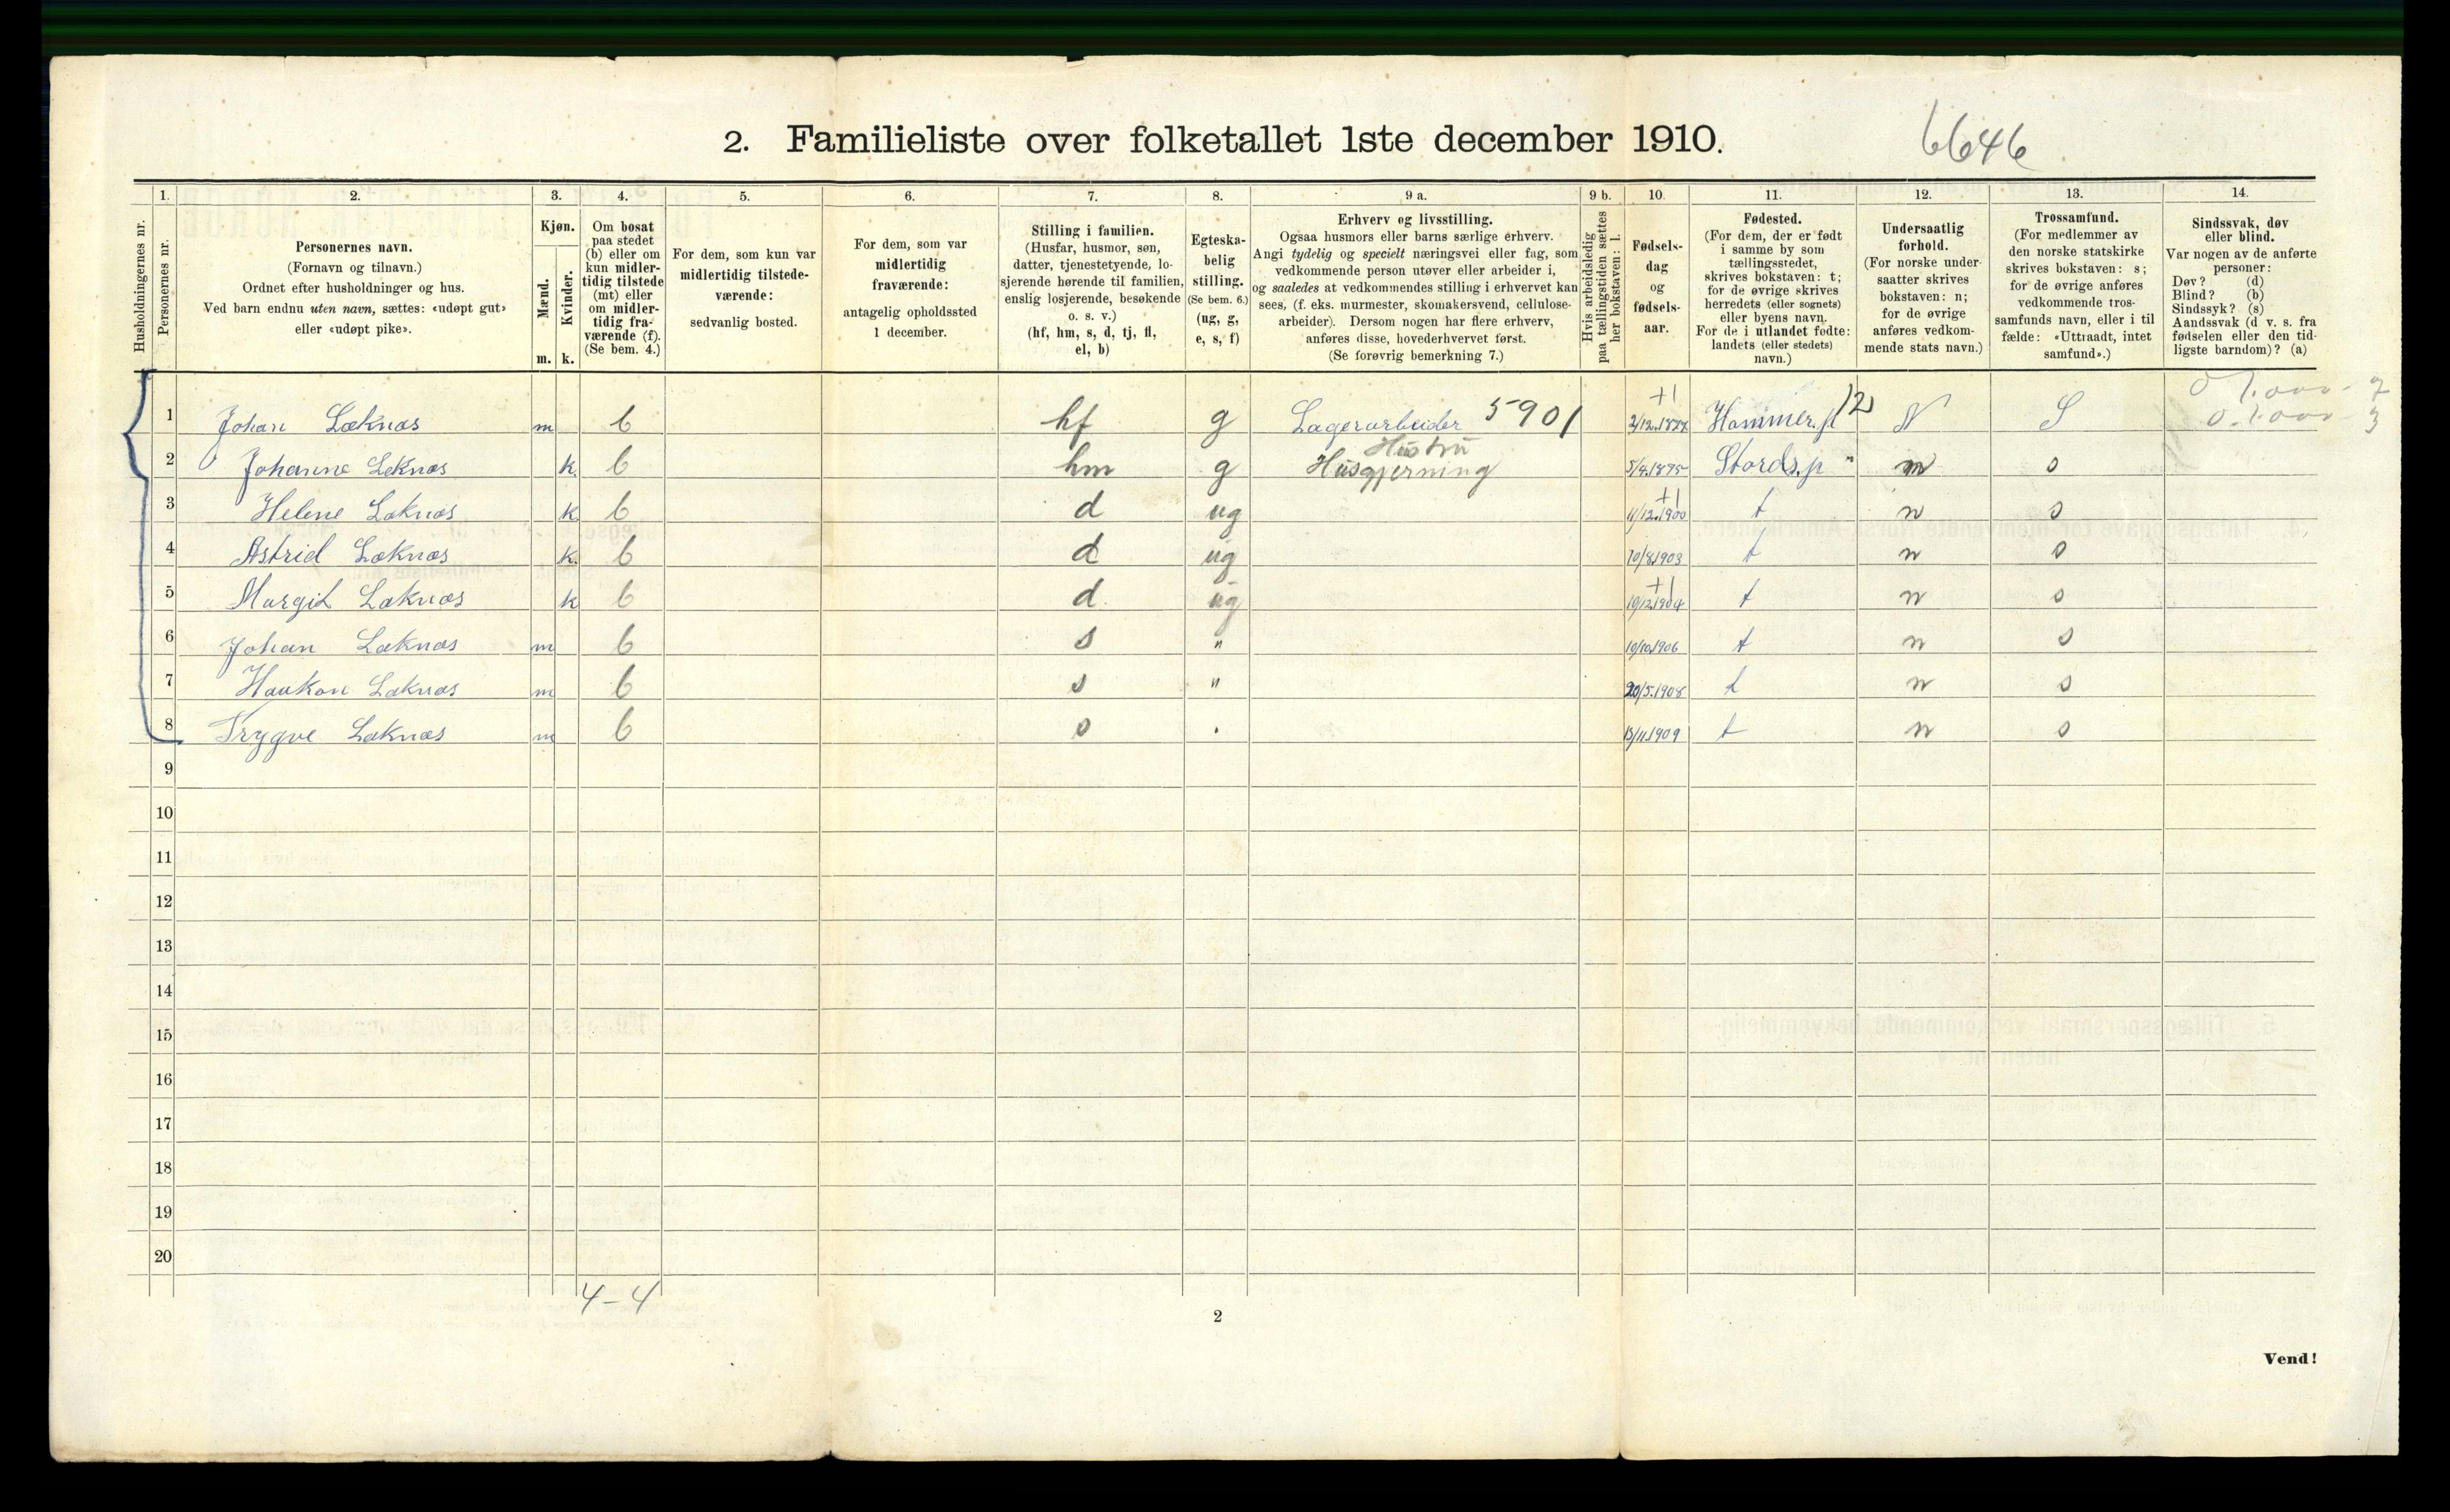 2. Familieliste over folketallet 1ste december 1910.
6646
Husholdningernes nr.
1. Personernes nr.
2. Personernes navn. (Fornavn og tilnavn.) Ordnet efter husholdninger og hus. Ved barn endnu uten navn, sættes: «udøpt gut» eller «udøpt pike».
3. Kjøn. Mænd. m. Kvinder. k.
4. Om bosat paa stedet (b) eller om kun midlertidig tilstede (mt) eller om midlertidig fraværende (f). (Se bem. 4.)
5. For dem, som kun var midlertidig tilstedeværende: sedvanlig bosted.
6. For dem, som var midlertidig fraværende: antagelig opholdssted 1 december.
7. Stilling i familien. (Husfar, husmor, søn, datter, tjenestetyende, losjerende hørende til familien, enslig losjerende, besøkende o. s. v.) (hf, hm, s, d, tj, fl, el, b)
8. Egteskabelig stilling. (Se bem. 6.) (ug, g, e, s, f)
9 a. Erhverv og livsstilling. Ogsaa husmors eller barns særlige erhverv. Angi tydelig og specielt næringsvei eller fag, som vedkommende person utøver eller arbeider i, og saaledes at vedkommendes stilling i erhvervet kan sees, (f. eks. murmester, skomakersvend, cellulosearbeider). Dersom nogen har flere erhverv, anføres disse, hovederhvervet først. (Se forøvrig bemerkning 7.)
9 b. Hvis arbeidsledig paa tællingstiden sættes her bokstaven: l.
10. Fødselsdag og fødselsaar.
11. Fødested. (For dem, der er født i samme by som tællingsstedet, skrives bokstaven: t; for de øvrige skrives herredets (eller sognets) eller byens navn. For de i utlandet fødte: landets (eller stedets) navn.)
12. Undersaatlig forhold. (For norske undersaatter skrives bokstaven: n; for de øvrige anføres vedkommende stats navn.)
13. Trossamfund. (For medlemmer av den norske statskirke skrives bokstaven: s; for de øvrige anføres vedkommende trossamfunds navn, eller i tilfælde: «Uttraadt, intet samfund».)
14. Sindssvak, døv eller blind. Var nogen av de anførte personer: Døv? (d) Blind? (b) Sindssyk? (s) Aandssvak (d v. s. fra fødselen eller den tidligste barndom)? (a)
1 Johan Læknæs m b hf g Lagerarbeider 5901 Hammer.p 12 N S
2 Johanne Leknæs k b hm g Hustru Husgjerning 5/4.1875 Stords.p " n s
3 Helene Læknæs k b d ug 11/12.1900 +1 t n s
4 Astrid Læknæs k. b d ug 10/8.1903 t n s
5 Margit Læknæs k b d ug 10/12.1904 +1 t n s
6 Johan Læknæs m b s " 10/10.1906 t n s
7 Haakon Læknæs m b s " 20/5.1908 t n s
8 Trygve Læknæs m b s . 13/11.1909 t n s
9
10
11
12
13
14
15
16
17
18
19
20
4-4
2
Vend!